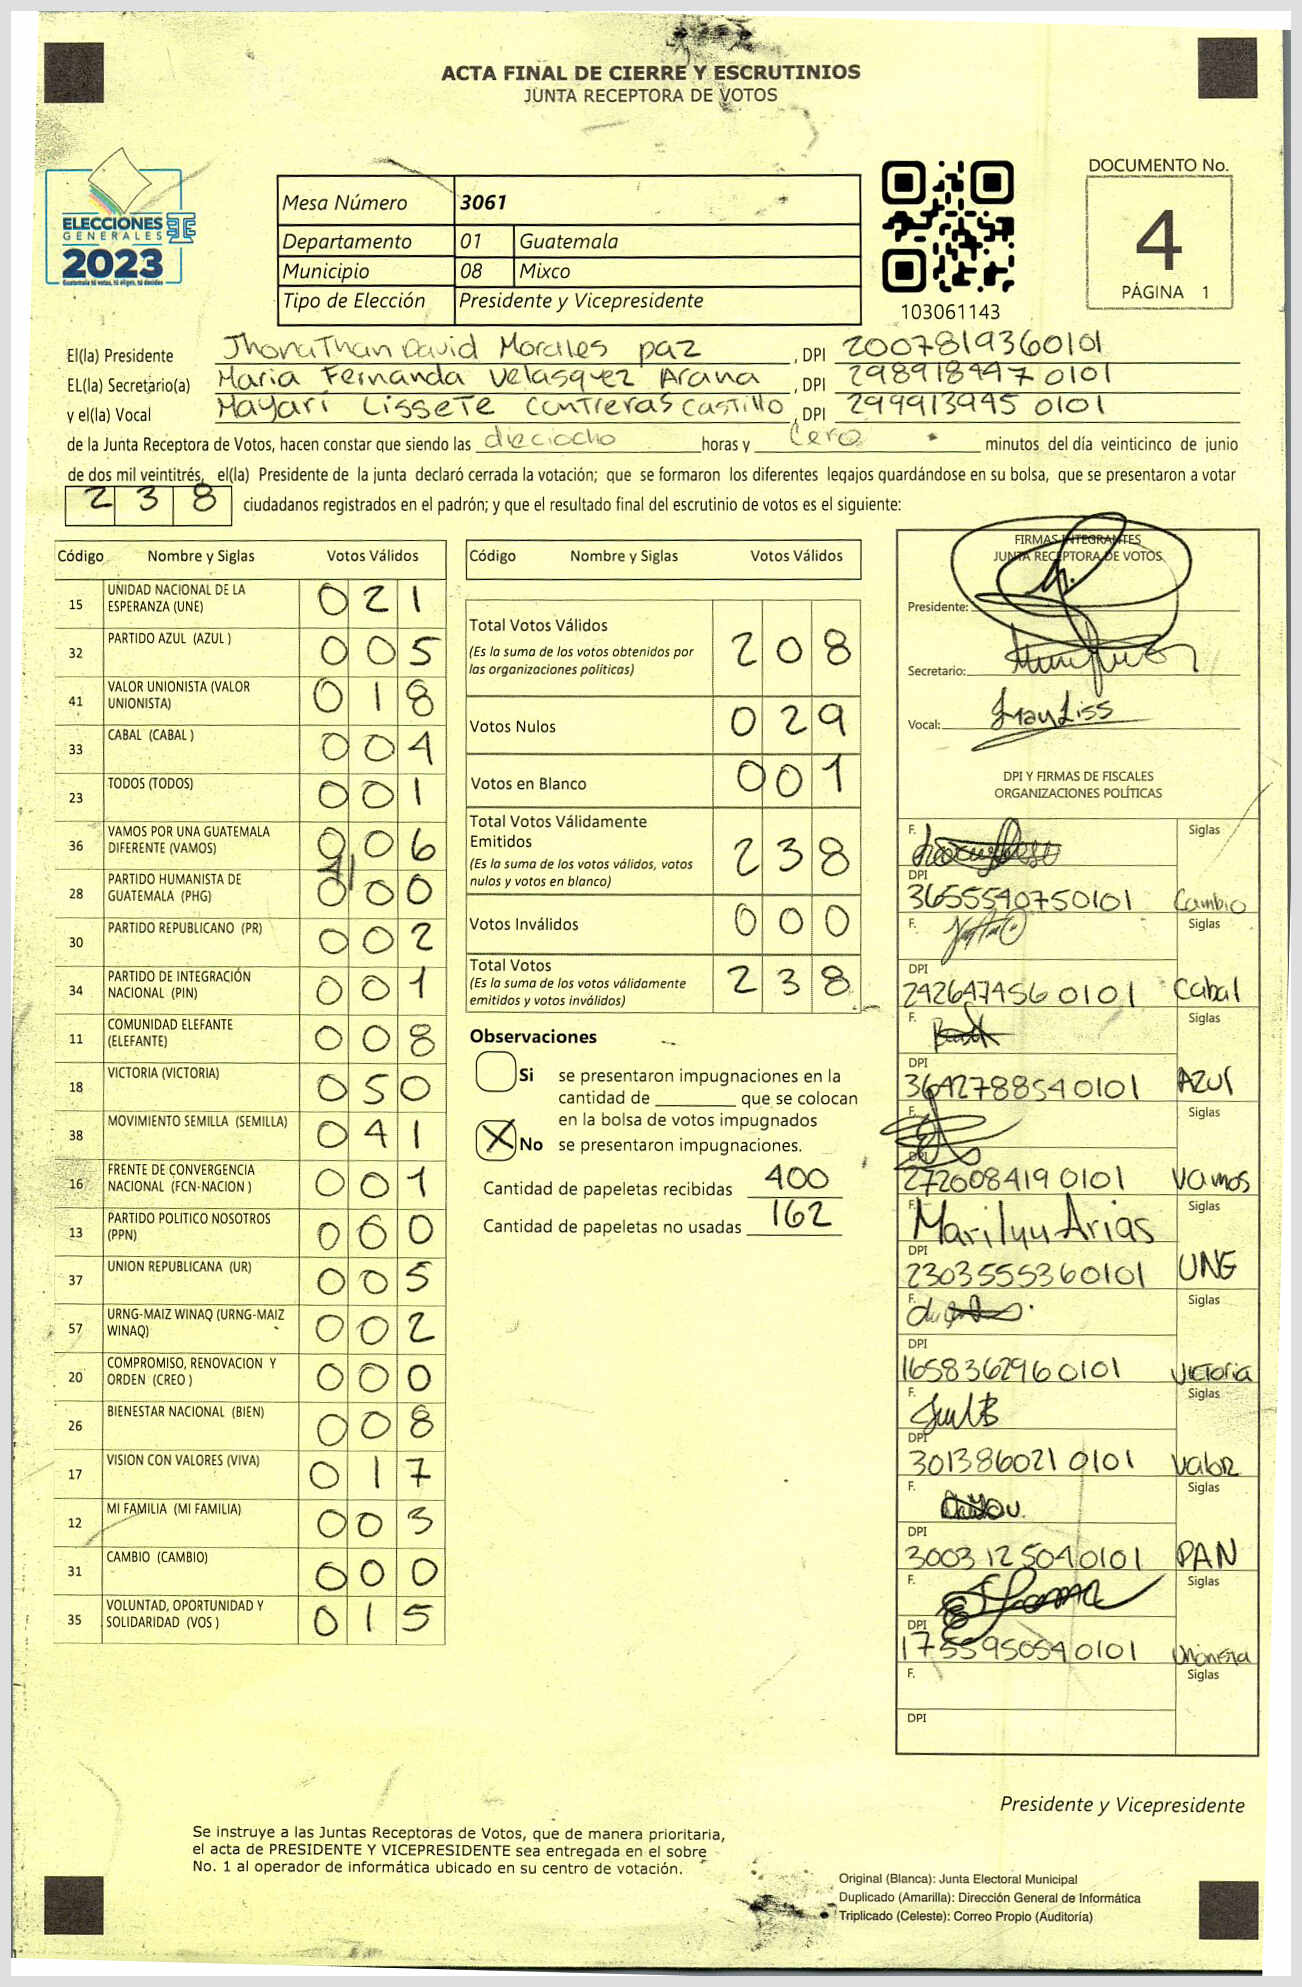 ACTA FINAL DE CIERRE Y ESCRUTINIOS
JUNTA RECEPTORA DE VOTOS
ELECCIONES
GENERALES
2023
Guatemala tú votas, tú eliges, tú decides
Mesa Número 3061
Departamento 01 Guatemala
Municipio 08 Mixco
Tipo de Elección Presidente y Vicepresidente
103061143
DOCUMENTO No.
4
PÁGINA 1
El(la) Presidente Jhonathan David Morales paz, DPI 2007819360101
EL(la) Secretario(a) Maria Fernanda Velasquez Arana, DPI 298918447 0101
y el(la) Vocal Mayari Lissete Contreras Castillo, DPI 299913945 0101
de la Junta Receptora de Votos, hacen constar que siendo las dieciocho horas y Cero minutos del día veinticinco de junio
de dos mil veintitrés, el(la) Presidente de la junta declaró cerrada la votación; que se formaron los diferentes legajos guardándose en su bolsa, que se presentaron a votar
238 ciudadanos registrados en el padrón; y que el resultado final del escrutinio de votos es el siguiente:
Código Nombre y Siglas Votos Válidos
15 UNIDAD NACIONAL DE LA ESPERANZA (UNE) 021
32 PARTIDO AZUL (AZUL ) 005
41 VALOR UNIONISTA (VALOR UNIONISTA) 018
33 CABAL (CABAL ) 004
23 TODOS (TODOS) 001
36 VAMOS POR UNA GUATEMALA DIFERENTE (VAMOS) 006
28 PARTIDO HUMANISTA DE GUATEMALA (PHG) 000
30 PARTIDO REPUBLICANO (PR) 002
34 PARTIDO DE INTEGRACIÓN NACIONAL (PIN) 001
11 COMUNIDAD ELEFANTE (ELEFANTE) 008
18 VICTORIA (VICTORIA) 050
38 MOVIMIENTO SEMILLA (SEMILLA) 041
16 FRENTE DE CONVERGENCIA NACIONAL (FCN-NACION ) 001
13 PARTIDO POLITICO NOSOTROS (PPN) 000
37 UNION REPUBLICANA (UR) 005
57 URNG-MAIZ WINAQ (URNG-MAIZ WINAQ) 002
20 COMPROMISO, RENOVACION Y ORDEN (CREO ) 000
26 BIENESTAR NACIONAL (BIEN) 008
17 VISION CON VALORES (VIVA) 017
12 MI FAMILIA (MI FAMILIA) 003
31 CAMBIO (CAMBIO) 000
35 VOLUNTAD, OPORTUNIDAD Y SOLIDARIDAD (VOS ) 015
Código Nombre y Siglas Votos Válidos
Total Votos Válidos 208
(Es la suma de los votos obtenidos por
las organizaciones políticas)
Votos Nulos 029
Votos en Blanco 001
Total Votos Válidamente
Emitidos 238
(Es la suma de los votos válidos, votos
nulos y votos en blanco)
Votos Inválidos 000
Total Votos 238
(Es la suma de los votos válidamente
emitidos y votos inválidos)
Observaciones
Si se presentaron impugnaciones en la
cantidad de ________ que se colocan
en la bolsa de votos impugnados
X No se presentaron impugnaciones.
Cantidad de papeletas recibidas 400
Cantidad de papeletas no usadas 162
FIRMAS INTEGRANTES
JUNTA RECEPTORA DE VOTOS
Presidente:
Secretario:
Vocal: MayLiss
DPI Y FIRMAS DE FISCALES
ORGANIZACIONES POLÍTICAS
F. Siglas
DPI
3655540750101 Cambio
F. Siglas
DPI
242647456 0101 Cabal
F. Siglas
DPI
3642788540101 AZUL
F. Siglas
DPI
272008419 0101 Vamos
F. Marilyn Arias Siglas
DPI
2303555360101 UNE
F. Siglas
DPI
1658362960101 Victoria
F. Siglas
DPI
301386021 0101 Valor
F. Siglas
DPI
3003125040101 PAN
F. Siglas
DPI
1755950540101 Unionista
F. Siglas
DPI
Presidente y Vicepresidente
Se instruye a las Juntas Receptoras de Votos, que de manera prioritaria,
el acta de PRESIDENTE Y VICEPRESIDENTE sea entregada en el sobre
No. 1 al operador de informática ubicado en su centro de votación.
Original (Blanca): Junta Electoral Municipal
Duplicado (Amarilla): Dirección General de Informática
Triplicado (Celeste): Correo Propio (Auditoría)